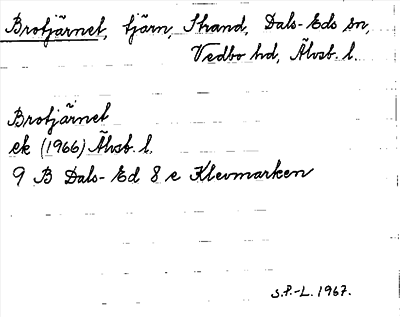 Brotjärnet, tjärn, Strand, Dals-Eds sn,
Vedbo hd, Älvsb. l.
Brotjärnet
ek (1966) Älvsb. l.
9 B Dals-Ed 8 e Klevmarken
S.P.-L. 1967.